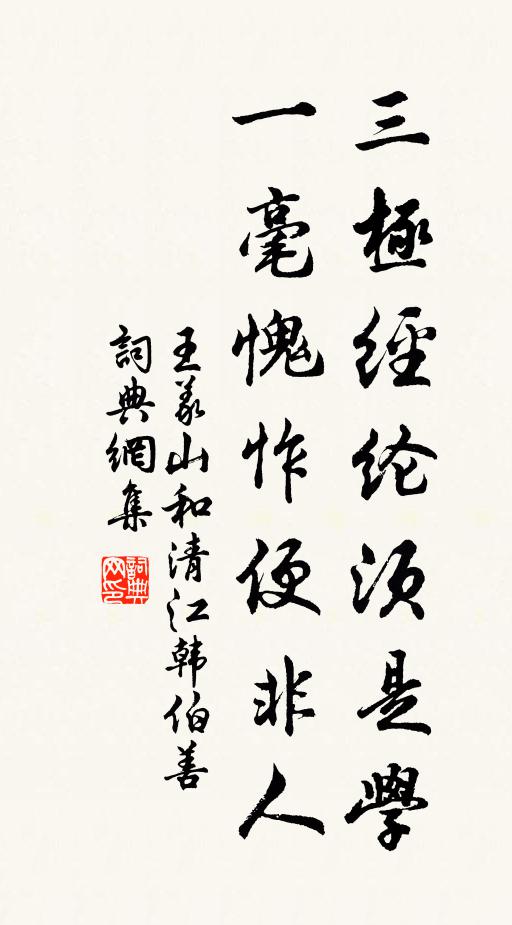 三極經纶須是學
一毫愧怍便非人
王义山和清江韩伯善
詞典網集
詞典网印